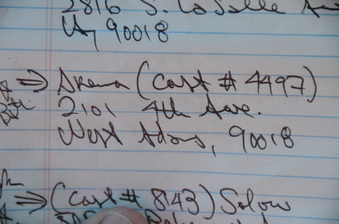 2816 S. LaSalle Ave
LA, 90018
⇒ Arena (Cast # 4497)
2101 4th Ave.
West Adams, 90018
⇒ (Cast # 8143) Solow